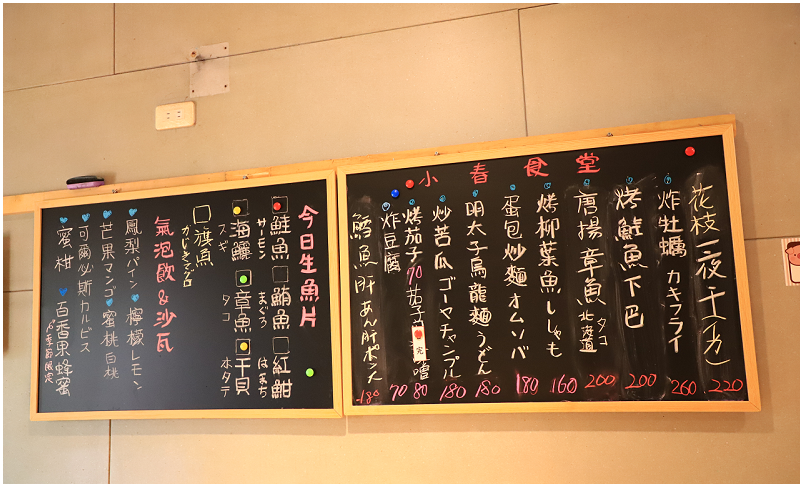 小春食堂
花枝一夜干イカ 220
炸牡蠣 カキフライ 260
烤鮭魚下巴 200
唐揚章魚 タコ 北海道 200
烤柳葉魚 ししゃも 160
蛋包炒麵 オムソバ 180
明太子烏龍麵 うどん 180
炒苦瓜 ゴーヤチャンプル 180
烤茄子 70 茄子 噌 80
完
炸豆腐 70
鱈魚肝 あん肝ポン 180
今日生魚片
鮭魚 サーモン
鮪魚 まぐろ
紅魽 はまち
海鱺 スギ
章魚 タコ
干貝 ホタテ
旗魚 かじきマグロ
氣泡飲&沙瓦
鳳梨 パイン
檸檬 レモン
芒果 マンゴ
蜜桃 白桃
可爾必斯 カルピス
蜜柑
百香果蜂蜜
季節限定